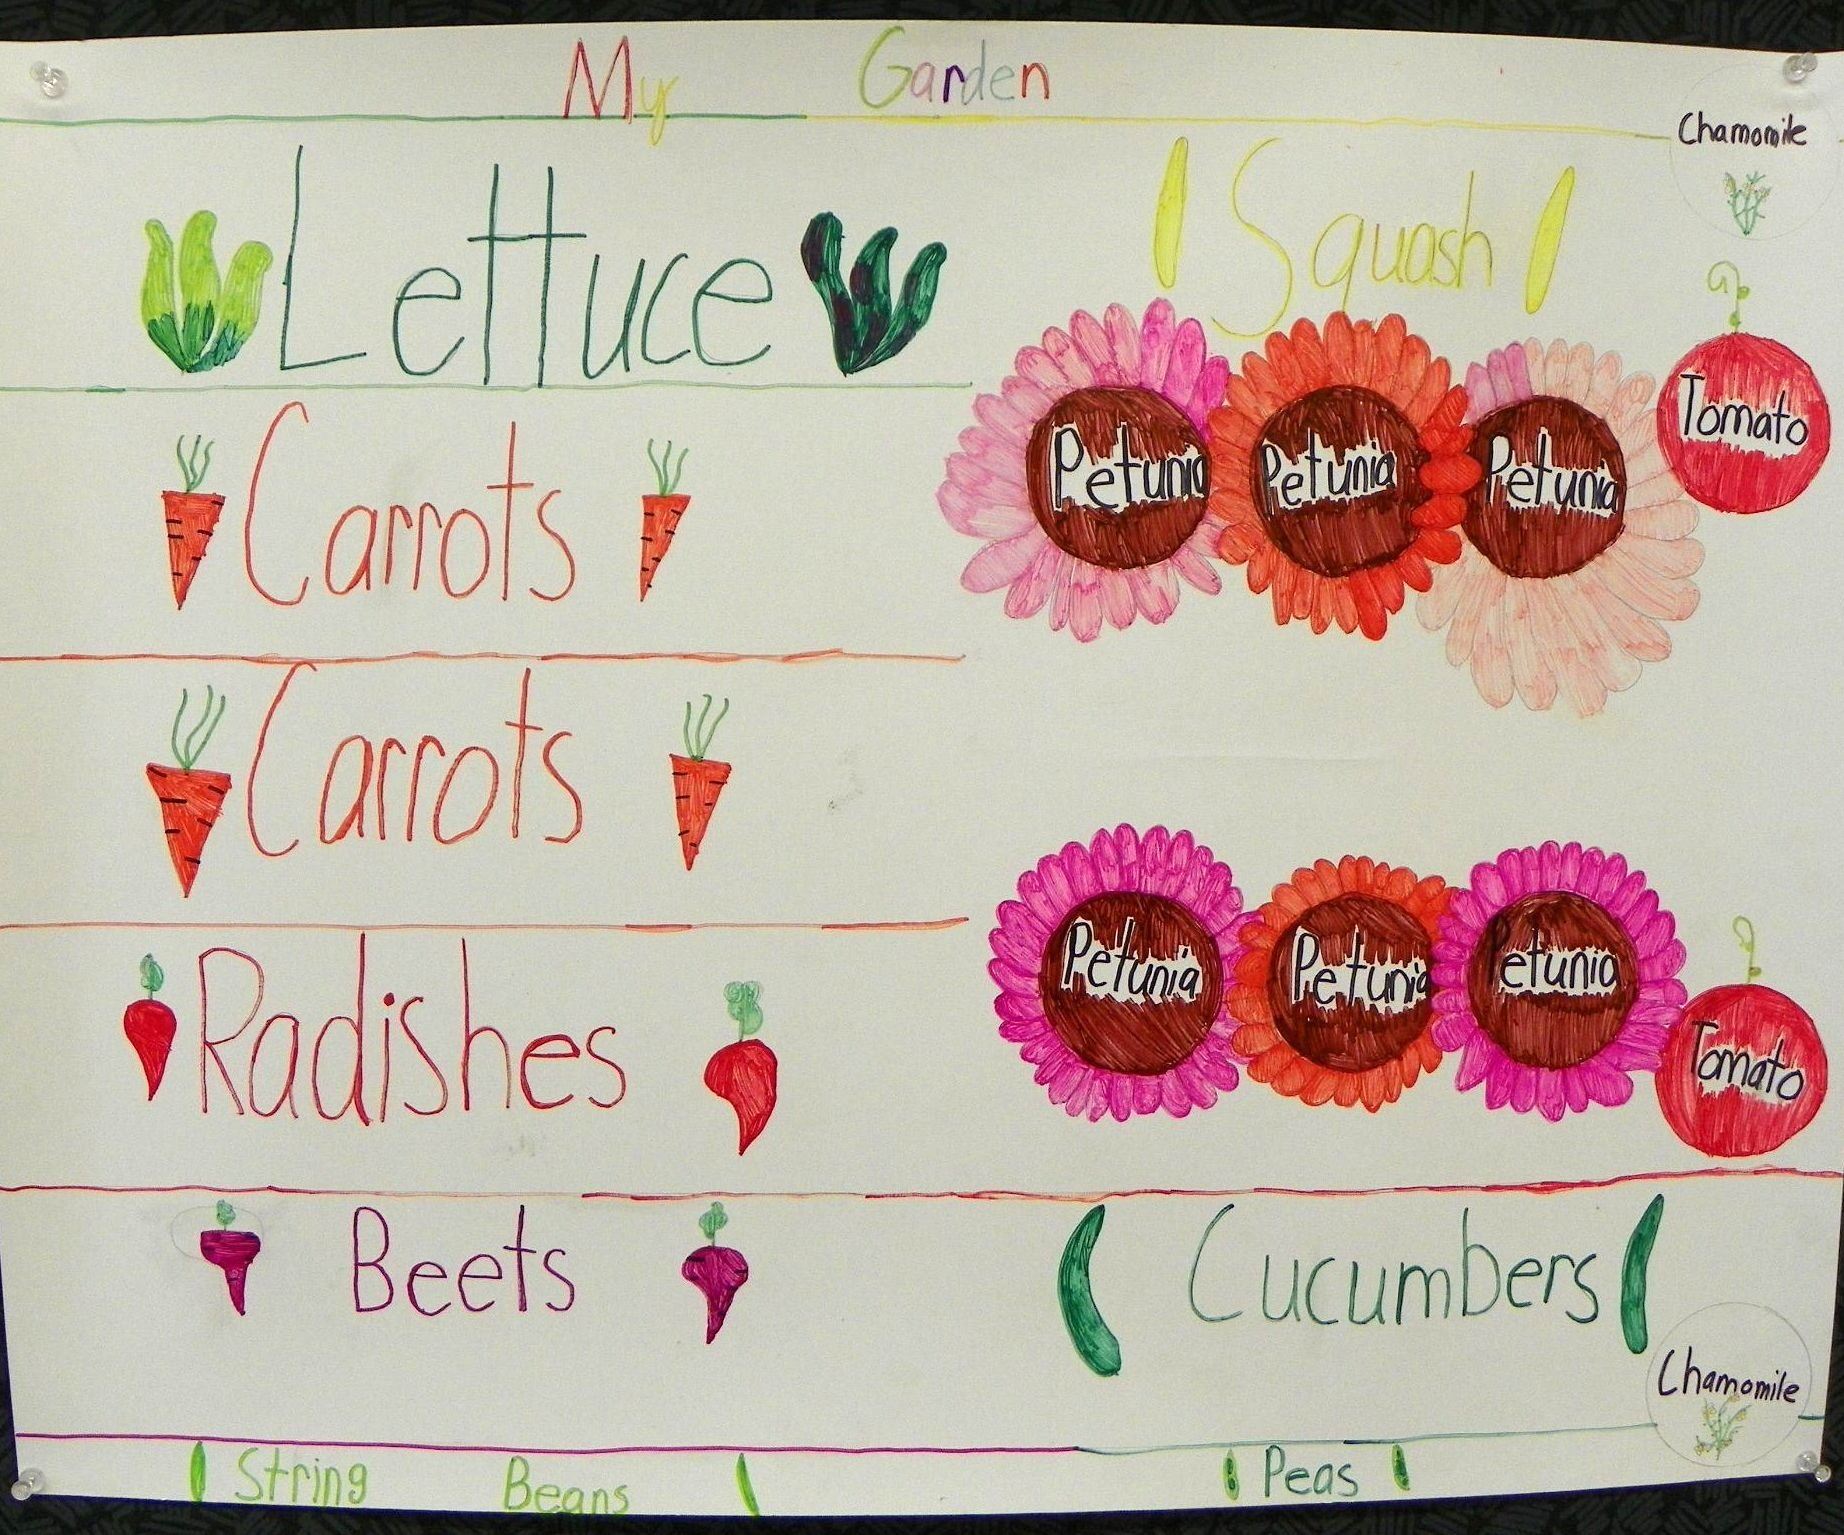 My Garden
Chamomile
Lettuce
Squash
Tomato
Petunia Petunia Petunia
Carrots
Carrots
Petunia Petunia Petunia
Radishes
Tomato
Beets
Cucumbers
Chamomile
String Beans
Peas